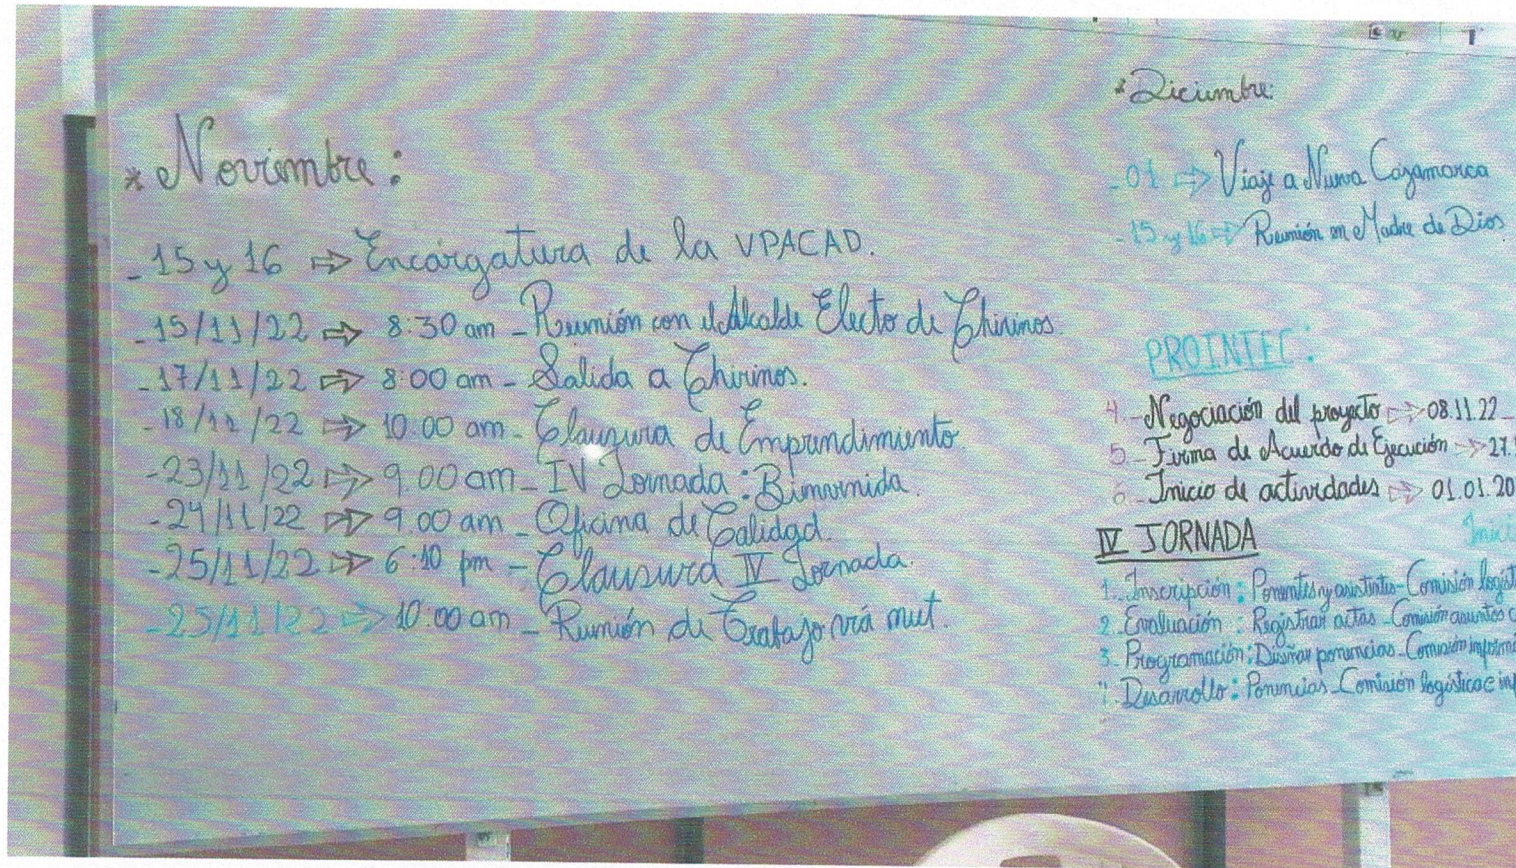 * Noviembre:
- 15 y 16 ⇒ Encargatura de la VPACAD.
- 15/11/22 ⇒ 8:30 am - Reunión con el Alcalde Electo de Chirinos.
- 17/11/22 ⇒ 8:00 am - Salida a Chirinos.
- 18/11/22 ⇒ 10:00 am - Clausura de Emprendimiento.
- 23/11/22 ⇒ 9:00 am - IV Jornada: Bienvenida.
- 24/11/22 ⇒ 9:00 am - Oficina de Calidad.
- 25/11/22 ⇒ 6:10 pm - Clausura IV Jornada.
- 25/11/22 ⇒ 10:00 am - Reunión de Trabajo vía meet.
* Diciembre:
- 01 ⇒ Viaje a Nueva Cajamarca
- 15 y 16 ⇒ Reunión en Madre de Dios
PROINTEC:
4.- Negociación del proyecto ⇒ 08.11.22 -
5.- Firma de Acuerdo de Ejecución ⇒ 27.
6.- Inicio de actividades ⇒ 01.01.20
IV JORNADA
Inici
1. Inscripción: Ponentes y asistentes - Comisión logíst
2. Evaluación: Registrar actas - Comisión asuntos
3. Programación: Diseñar ponencias - Comisión inform
Desarrollo: Ponencias - Comisión logística e in